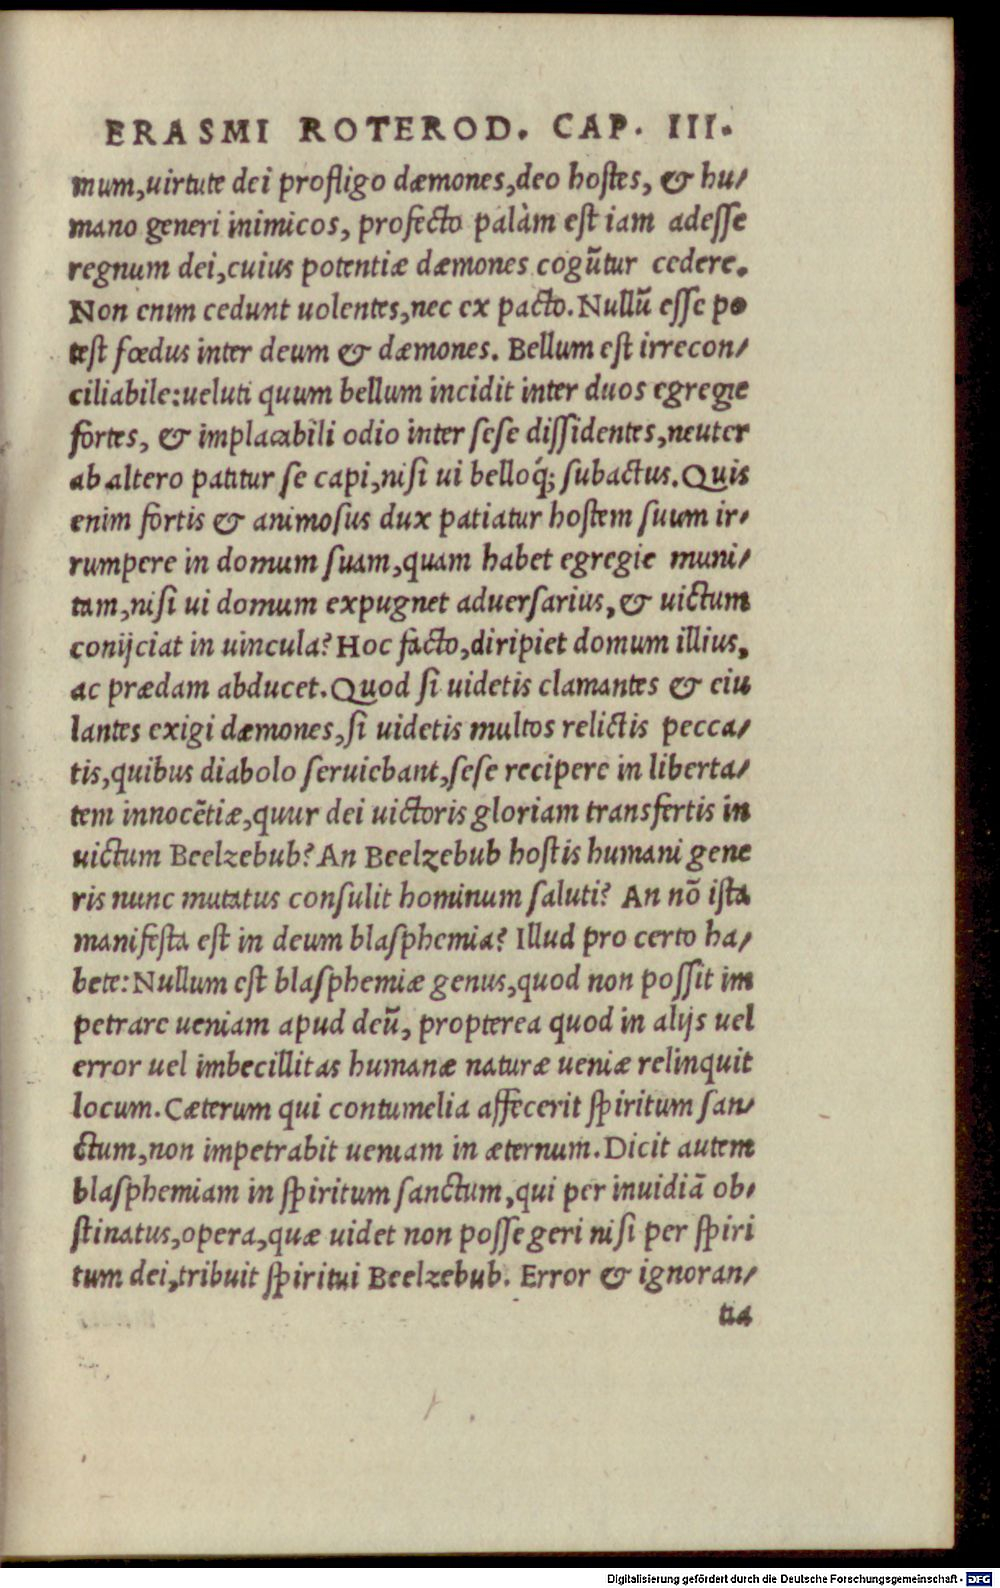 ERASMI ROTEROD. CAP. III.
mum,uirtute dei profligo dæmones,deo hostes, & hu/
mano generi inimicos, profecto palàm est iam adesse
regnum dei,cuius potentiæ dæmones cogũtur cedere.
Non enim cedunt uolentes,nec ex pacto. Nullũ esse po
test fœdus inter deum & dæmones. Bellum est irrecon/
ciliabile:ueluti quum bellum incidit inter duos egregie
fortes, & implacabili odio inter sese dissidentes,neuter
ab altero patitur se capi,nisi ui belloq́; subactus. Quis
enim fortis & animosus dux patiatur hostem suum ir/
rumpere in domum suam,quam habet egregie muni/
tam,nisi ui domum expugnet aduersarius,& uictum
conijciat in uincula? Hoc facto,diripiet domum illius,
ac prædam abducet. Quod si uidetis clamantes & eiu
lantes exigi dæmones,si uidetis multos relictis pecca/
tis,quibus diabolo seruiebant,sese recipere in liberta/
tem innocẽtiæ,quur dei uictoris gloriam transfertis in
uictum Beelzebub? An Beelzebub hostis humani gene
ris nunc mutatus consulit hominum saluti? An nõ ista
manifesta est in deum blasphemia? Illud pro certo ha/
bete: Nullum est blasphemiæ genus,quod non possit im
petrare ueniam apud deũ, propterea quod in alijs uel
error uel imbecillitas humanæ naturæ ueniæ relinquit
locum. Cæterum qui contumelia affecerit spiritum san/
ctum,non impetrabit ueniam in æternum. Dicit autem
blasphemiam in spiritum sanctum,qui per inuidiã ob/
stinatus,opera,quæ uidet non posse geri nisi per spiri
tum dei,tribuit spiritui Beelzebub. Error & ignoran/
tia
Digitalisierung gefördert durch die Deutsche Forschungsgemeinschaft - DFG